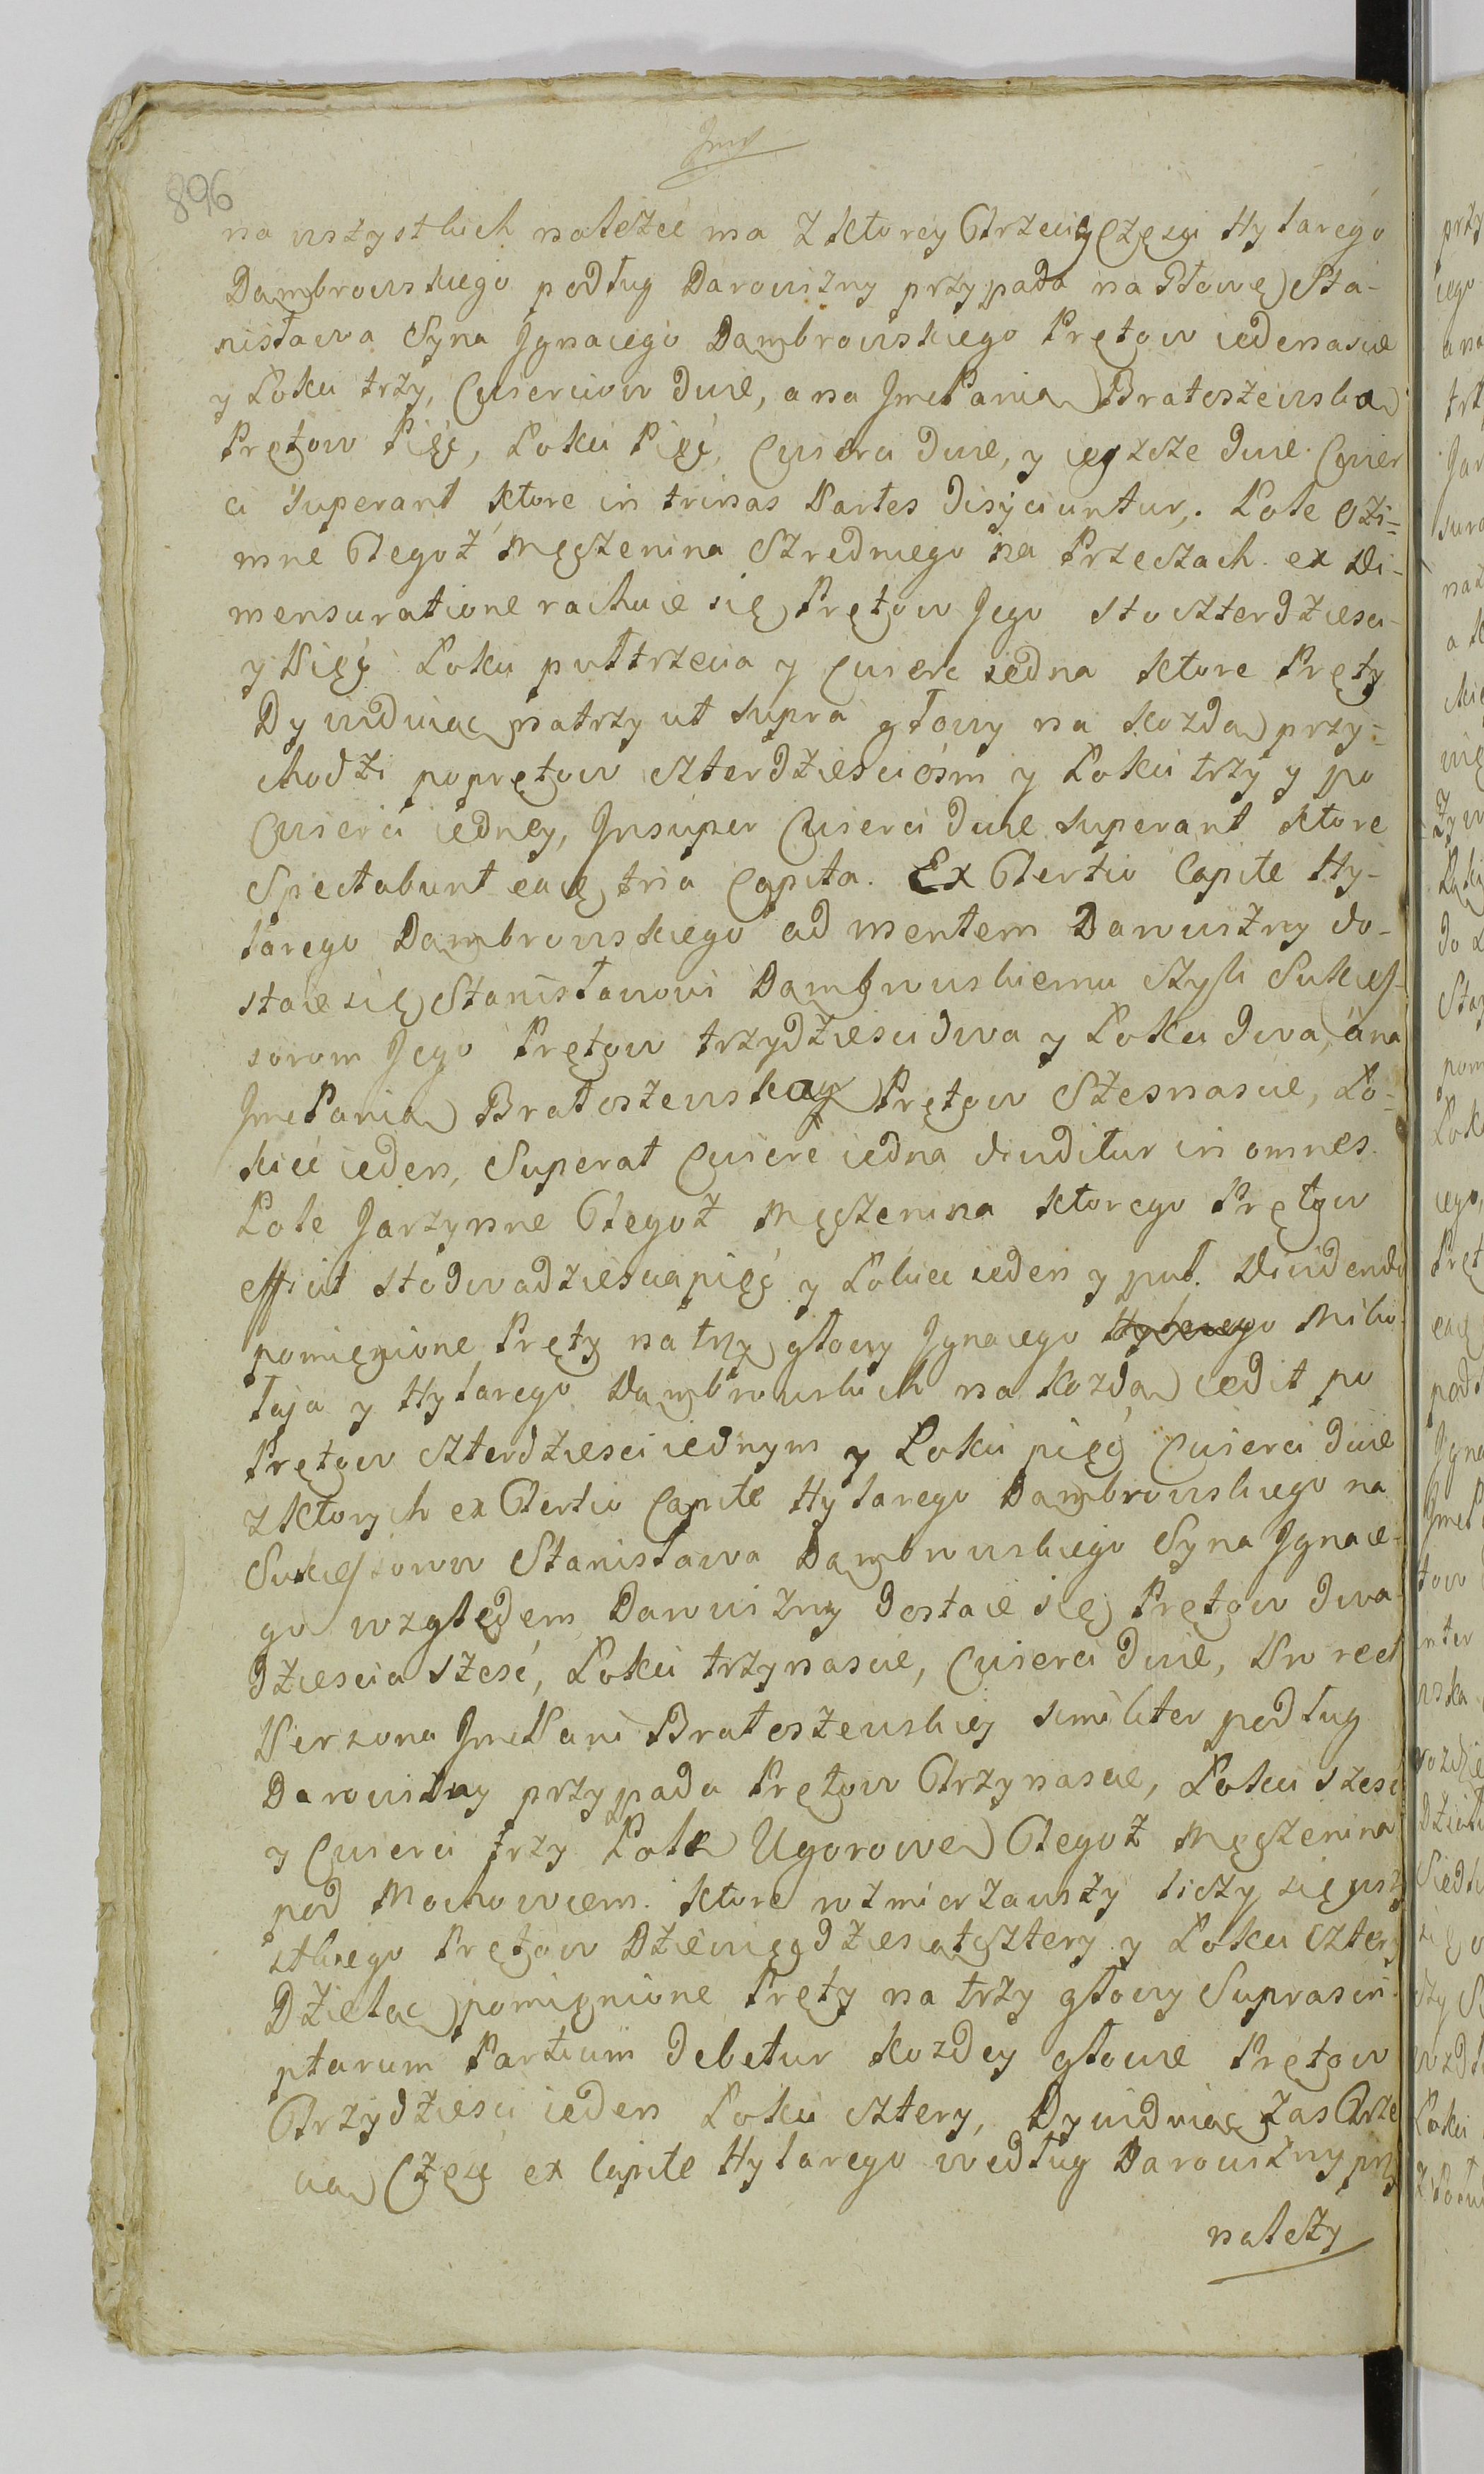 Jmś
896
na wszystkich należeć ma z ktorey Trzeciey Części Hylarego
Dambrowskiego podług Darowizny przypada na Głowę Sta-
nisława Syna Jgnacego Dambrowskiego Prętow iedenascie
y Łokci trzy, Cwierciow dwie, a na JmcPanią Bratoszewską
Prętow Pięć, Łokci Pięć, Cwierci dwie, y ieszcze dwie Cwier
ci superant ktore in trinas Partes disyciuntur. Pole Ozi-
mne Tegoż Męczenina Szredniego na Przeczach ex Di-
mensuratione rachuie się Prętow Jego sto szterdziesci
y Pięć Łokci pułtrzecia y Cwierc iedna ktore Pręty
Dywiduiąc na trzy ut supra głowy na kozdą przy-
chodzi poprętow czterdziesciośm y Łokci trzy y po
Cwierci iedney, Jnsuper Cwierci dwie superant ktore
Spectabunt eaeę tria Capita. Ex Tertio Capite Hy-
larego Dambrowskiego ad mentem Darowizny do-
staie się Stanisławowi Dambrowskiemu czyli Sukces-
sorom Jego Prętow trzydziesci dwa y Łokci dwa, a na
JmcPanią Bratoszewską Prętow Szesnascie, Ło-
kieć ieden, Superat Cwierc iedna dividitur in omnes.
Pole Jarzynne Tegoż Męczenina ktorego Prętow
efficit sto dwadziesciapięć y Łokiec ieden y puł. Dividendo
pomięnione Pręty na trzy głowy Jgnacego Hylarego Miko-
łaja y Hylarego Dambrowskich na kozdą cedit po
Prętow czterdziesci iednym y Łokci pięć Cwierci dwie
z ktorych ex Tertio Capite Hylarego Dambrowskiego na
Sukcessorow Stanisława Dambrowskiego Syna Jgnace-
go względem Darowizny dostaie się Prętow dwa-
dziescia szesć, Łokci trzynascie, Cwierci dwie, Pro rect
Persona JmcPani Bratoszewskiey similiter podług
Darowizny przypada Prętow Trzynascie, Łokci szesć
y Cwierci trzy Pole Ugorowe Tegoż Męczenina
pod Mochowcem. ktore rozmierzawszy liczy się wszy
stkiego Prętow Dziewięcdziesiątcztery y Łokci cztery
Dzieląc pomięnione Pręty na trzy głowy Suprascri-
ptarum Partium debetur kozdey głowie Prętow
Trzydziesci ieden Łokci cztery, Dywiduiąc zas Trze
cią Część ex Capite Hylarego według Darowizny przy
należy